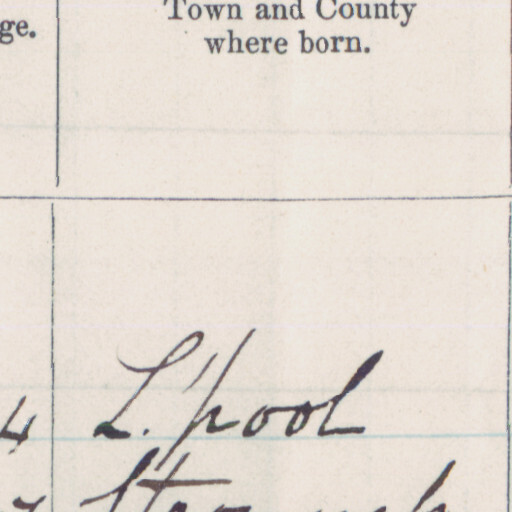 Town and County
ge.
where born.
4 L.pool